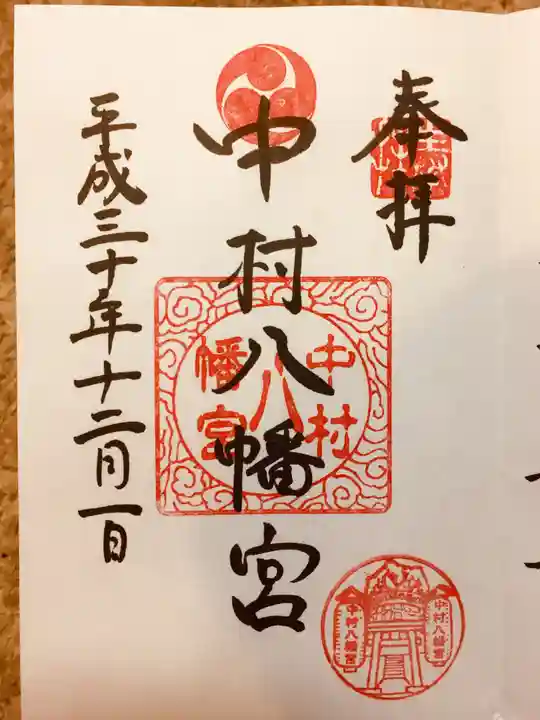 奉拝
中村八幡宮
平成三十年十二月一日
中村
八
幡宮
中村八幡宮
中村八幡宮